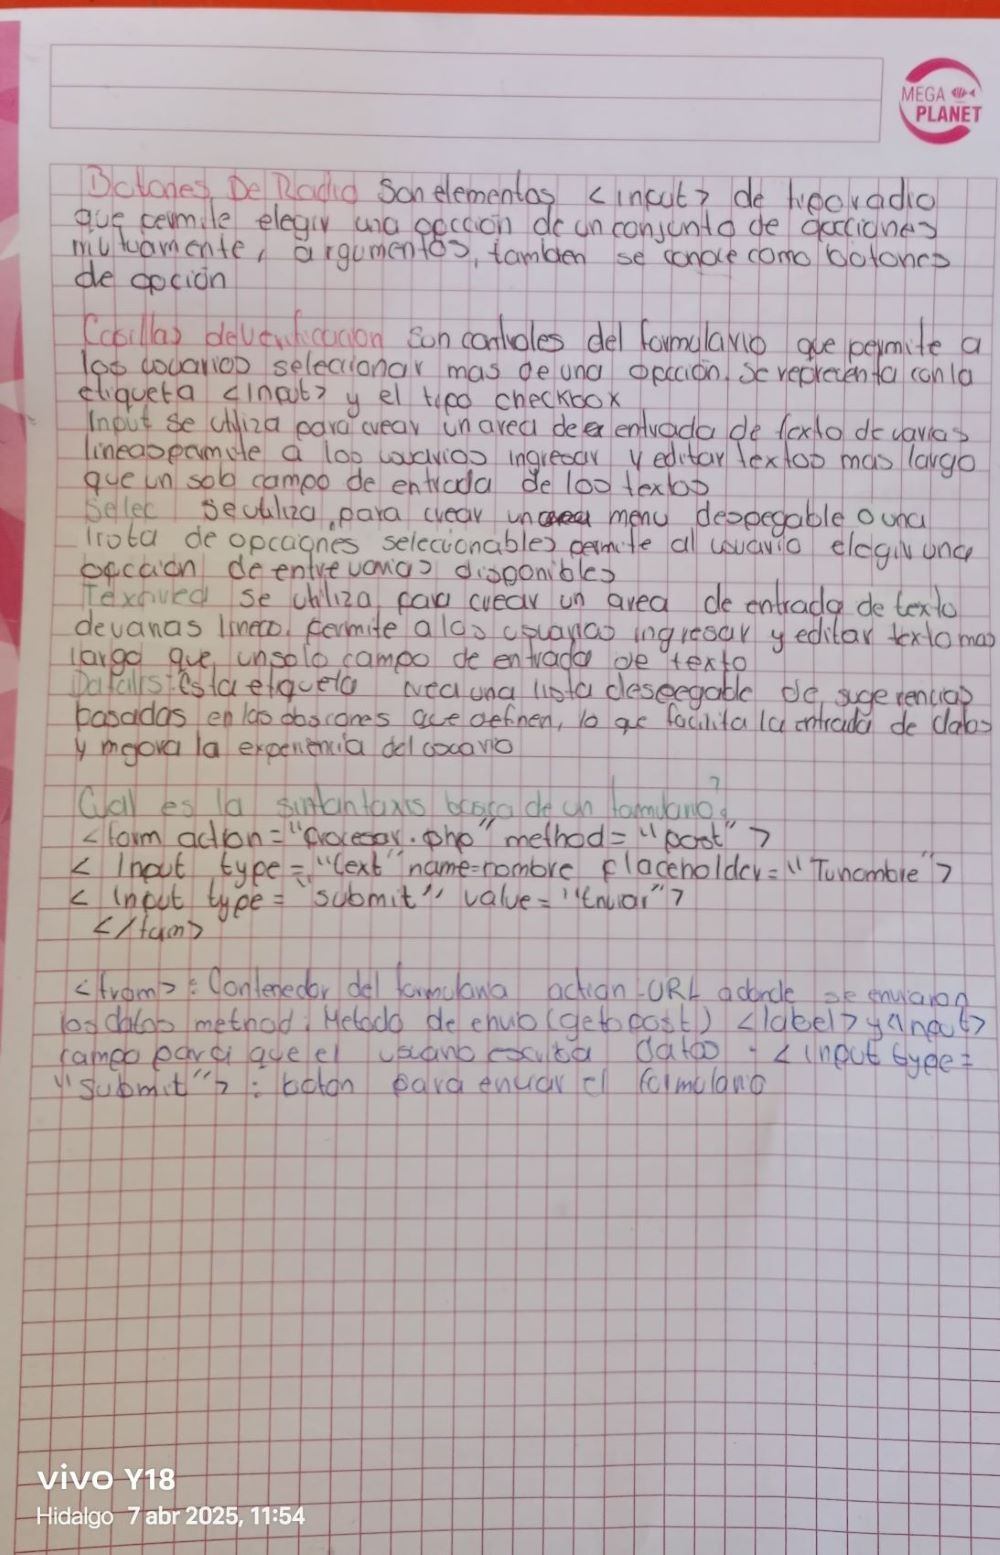 MEGA
PLANET
Botones De Radio Son elementos <input> de tipo radio
que permite elegir una opccion de un conjunto de opcciones
mutuamente, argumentos, tambien se conoce como botones
de opción
Casillas de verificacion Son controles del formulario que permite a
los usuarios seleccionar mas de una opcción, se representa con la
etiqueta <Input> y el tipo checkbox
Input se utiliza para crear un area de entrada de texto de varias
lineas permite a los usuarios ingresar y editar textos mas largo
que un solo campo de entrada de los textos
Selec se utiliza, para crear un menu despegable o una
lista de opcciones seleccionables permite al usuario elegir una
opccion de entre varias disponibles
Texarea se utiliza para crear un area de entrada de texto
de varias lineas, permite a los usuarios ingresar y editar texto mas
largo que un solo campo de entrada de texto
Datalist: Esta etiqueta crea una lista despegable de sugerencias
basadas en las obsciones que definen, lo que facilita la entrada de datos
y mejora la experiencia del usuario
Cual es la sintantaxis basica de un formulario?
<form action="procesar.php" method="post">
<Input type="text" name=nombre placeholder="Tu nombre">
<Input type="submit" value="Enviar">
</form>
<from>: Contenedor del formulario action-URL adonde se enviaran
los datos method: Metodo de envio (get o post) <label> y <input>
campo para que el usuario escriba datos - <input type=
"submit">: boton para enviar el formulario
vivo Y18
Hidalgo 7 abr 2025, 11:54